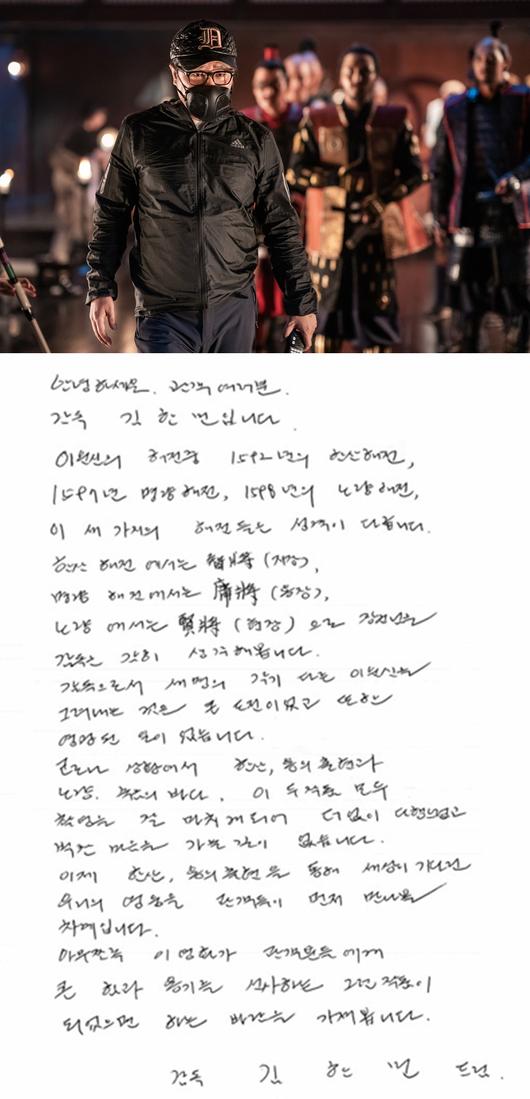 D
adidas
안녕하세요. 관객 여러분.
감독 김한민입니다.
이순신의 해전중 1592년의 한산해전,
1597년 명량해전, 1598년의 노량해전,
이 세 가지의 해전들은 성격이 다릅니다.
한산 해전에서는 智將 (지장),
명량 해전에서는 庸將 (용장),
노량에서는 賢將 (현장) 으로
감독은 감히 생각해봅니다.
감독으로서 세명의 각기 다른 이순신을
그려내는 것은 큰 도전이었고 또한
영광된 일이 었습니다.
코로나 상황에서 한산, 용의 출현과
노량, 죽음의 바다, 이 두작품 모두
촬영을 잘 마치게되어 더없이 다행스럽고
벅찬 마음을 가눌 길이 없습니다.
이제 한산, 용의 출현을 통해 세상이 기다린
우리의 영웅을 관객들이 먼저 만나볼
차례입니다.
아무쪼록 이 영화가 관객분들에게
큰 힘과 용기를 선사하는 그런 작품이
되었으면 하는 바램을 가져봅니다.
감독 김 한 민 드림.